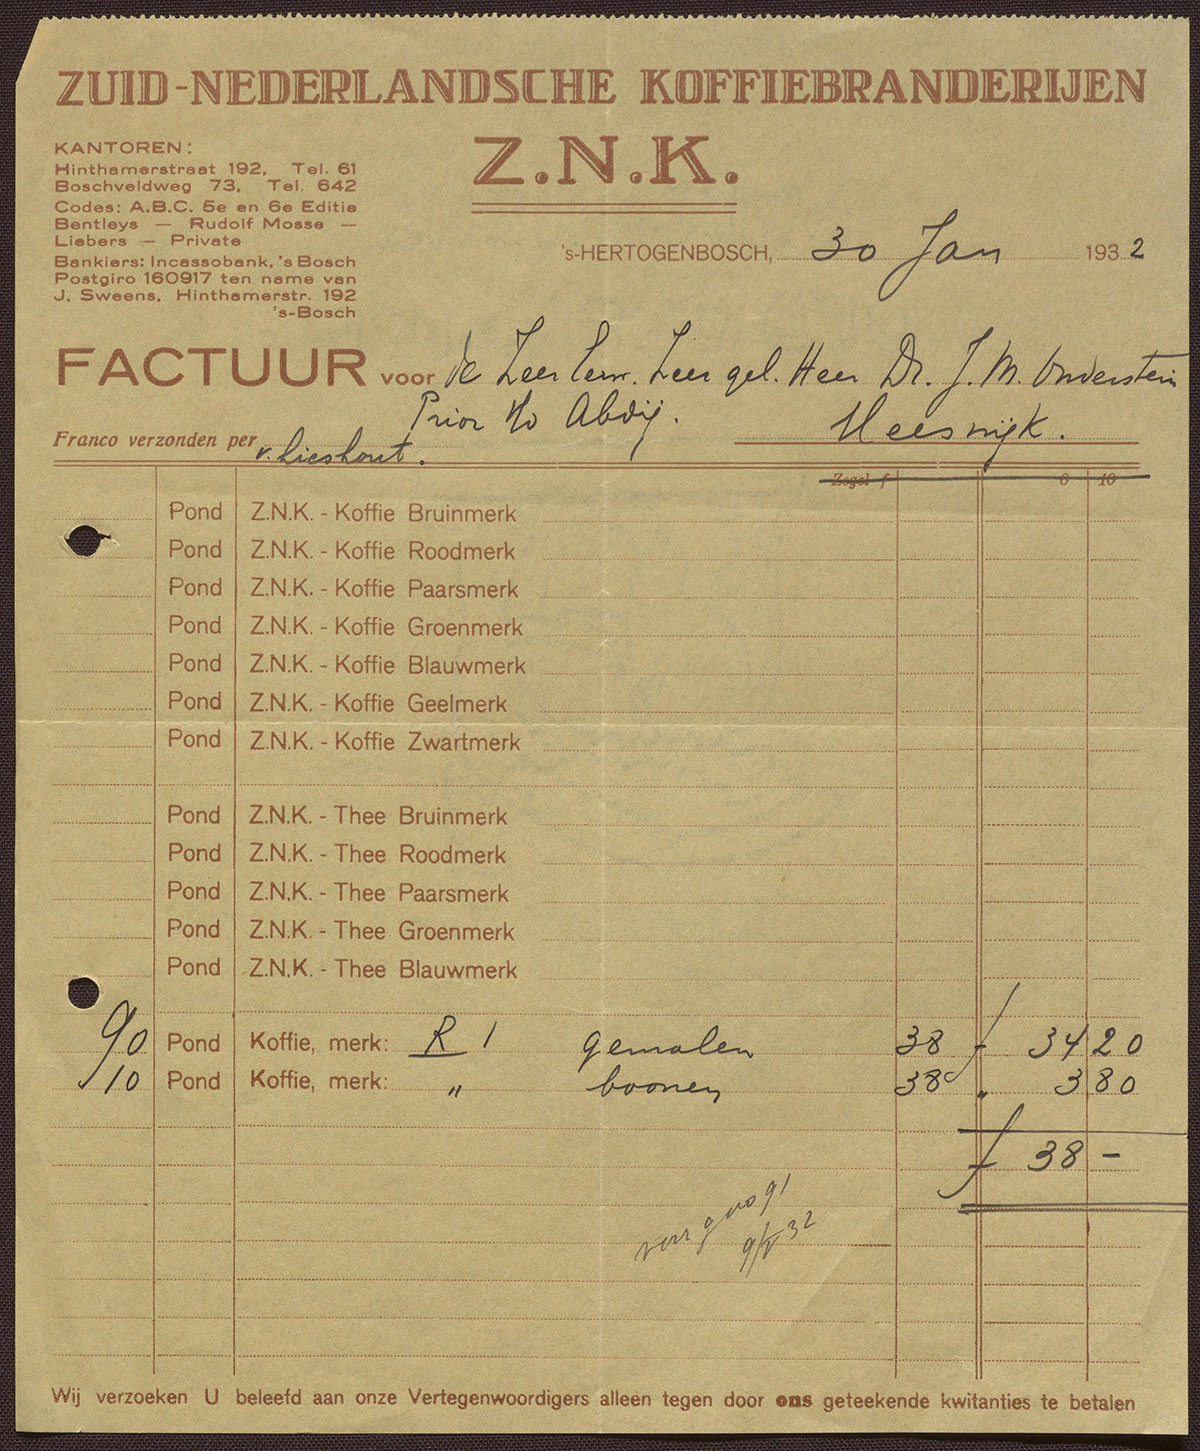 ZUID-NEDERLANDSCHE KOFFIEBRANDERIJEN
Z.N.K.
KANTOREN:
Hinthamerstraat 192, Tel. 61
Boschveldweg 73, Tel. 642
Codes: A.B.C. 5e en 6e Editie
Bentleys — Rudolf Mosse —
Liebers — Private
Bankiers: Incassobank, 's Bosch
Postgiro 160917 ten name van
J. Sweens, Hinthamerstr. 192
's-Bosch
's-HERTOGENBOSCH, 30 Jan 1932
FACTUUR voor de Zeer Eerw. Zeer gel. Heer Dr. J. M. Onderstein
Prior Abdij. Heeswijk.
Franco verzonden per v. Lieshout.
Zegel f 0 10
Pond Z.N.K. - Koffie Bruinmerk
Pond Z.N.K. - Koffie Roodmerk
Pond Z.N.K. - Koffie Paarsmerk
Pond Z.N.K. - Koffie Groenmerk
Pond Z.N.K. - Koffie Blauwmerk
Pond Z.N.K. - Koffie Geelmerk
Pond Z.N.K. - Koffie Zwartmerk
Pond Z.N.K. - Thee Bruinmerk
Pond Z.N.K. - Thee Roodmerk
Pond Z.N.K. - Thee Paarsmerk
Pond Z.N.K. - Thee Groenmerk
Pond Z.N.K. - Thee Blauwmerk
90 Pond Koffie, merk: R 1 gemalen 38 f 34 20
10 Pond Koffie, merk: " boonen 38 " 3 80
f 38 -
32
Wij verzoeken U beleefd aan onze Vertegenwoordigers alleen tegen door ons geteekende kwitanties te betalen